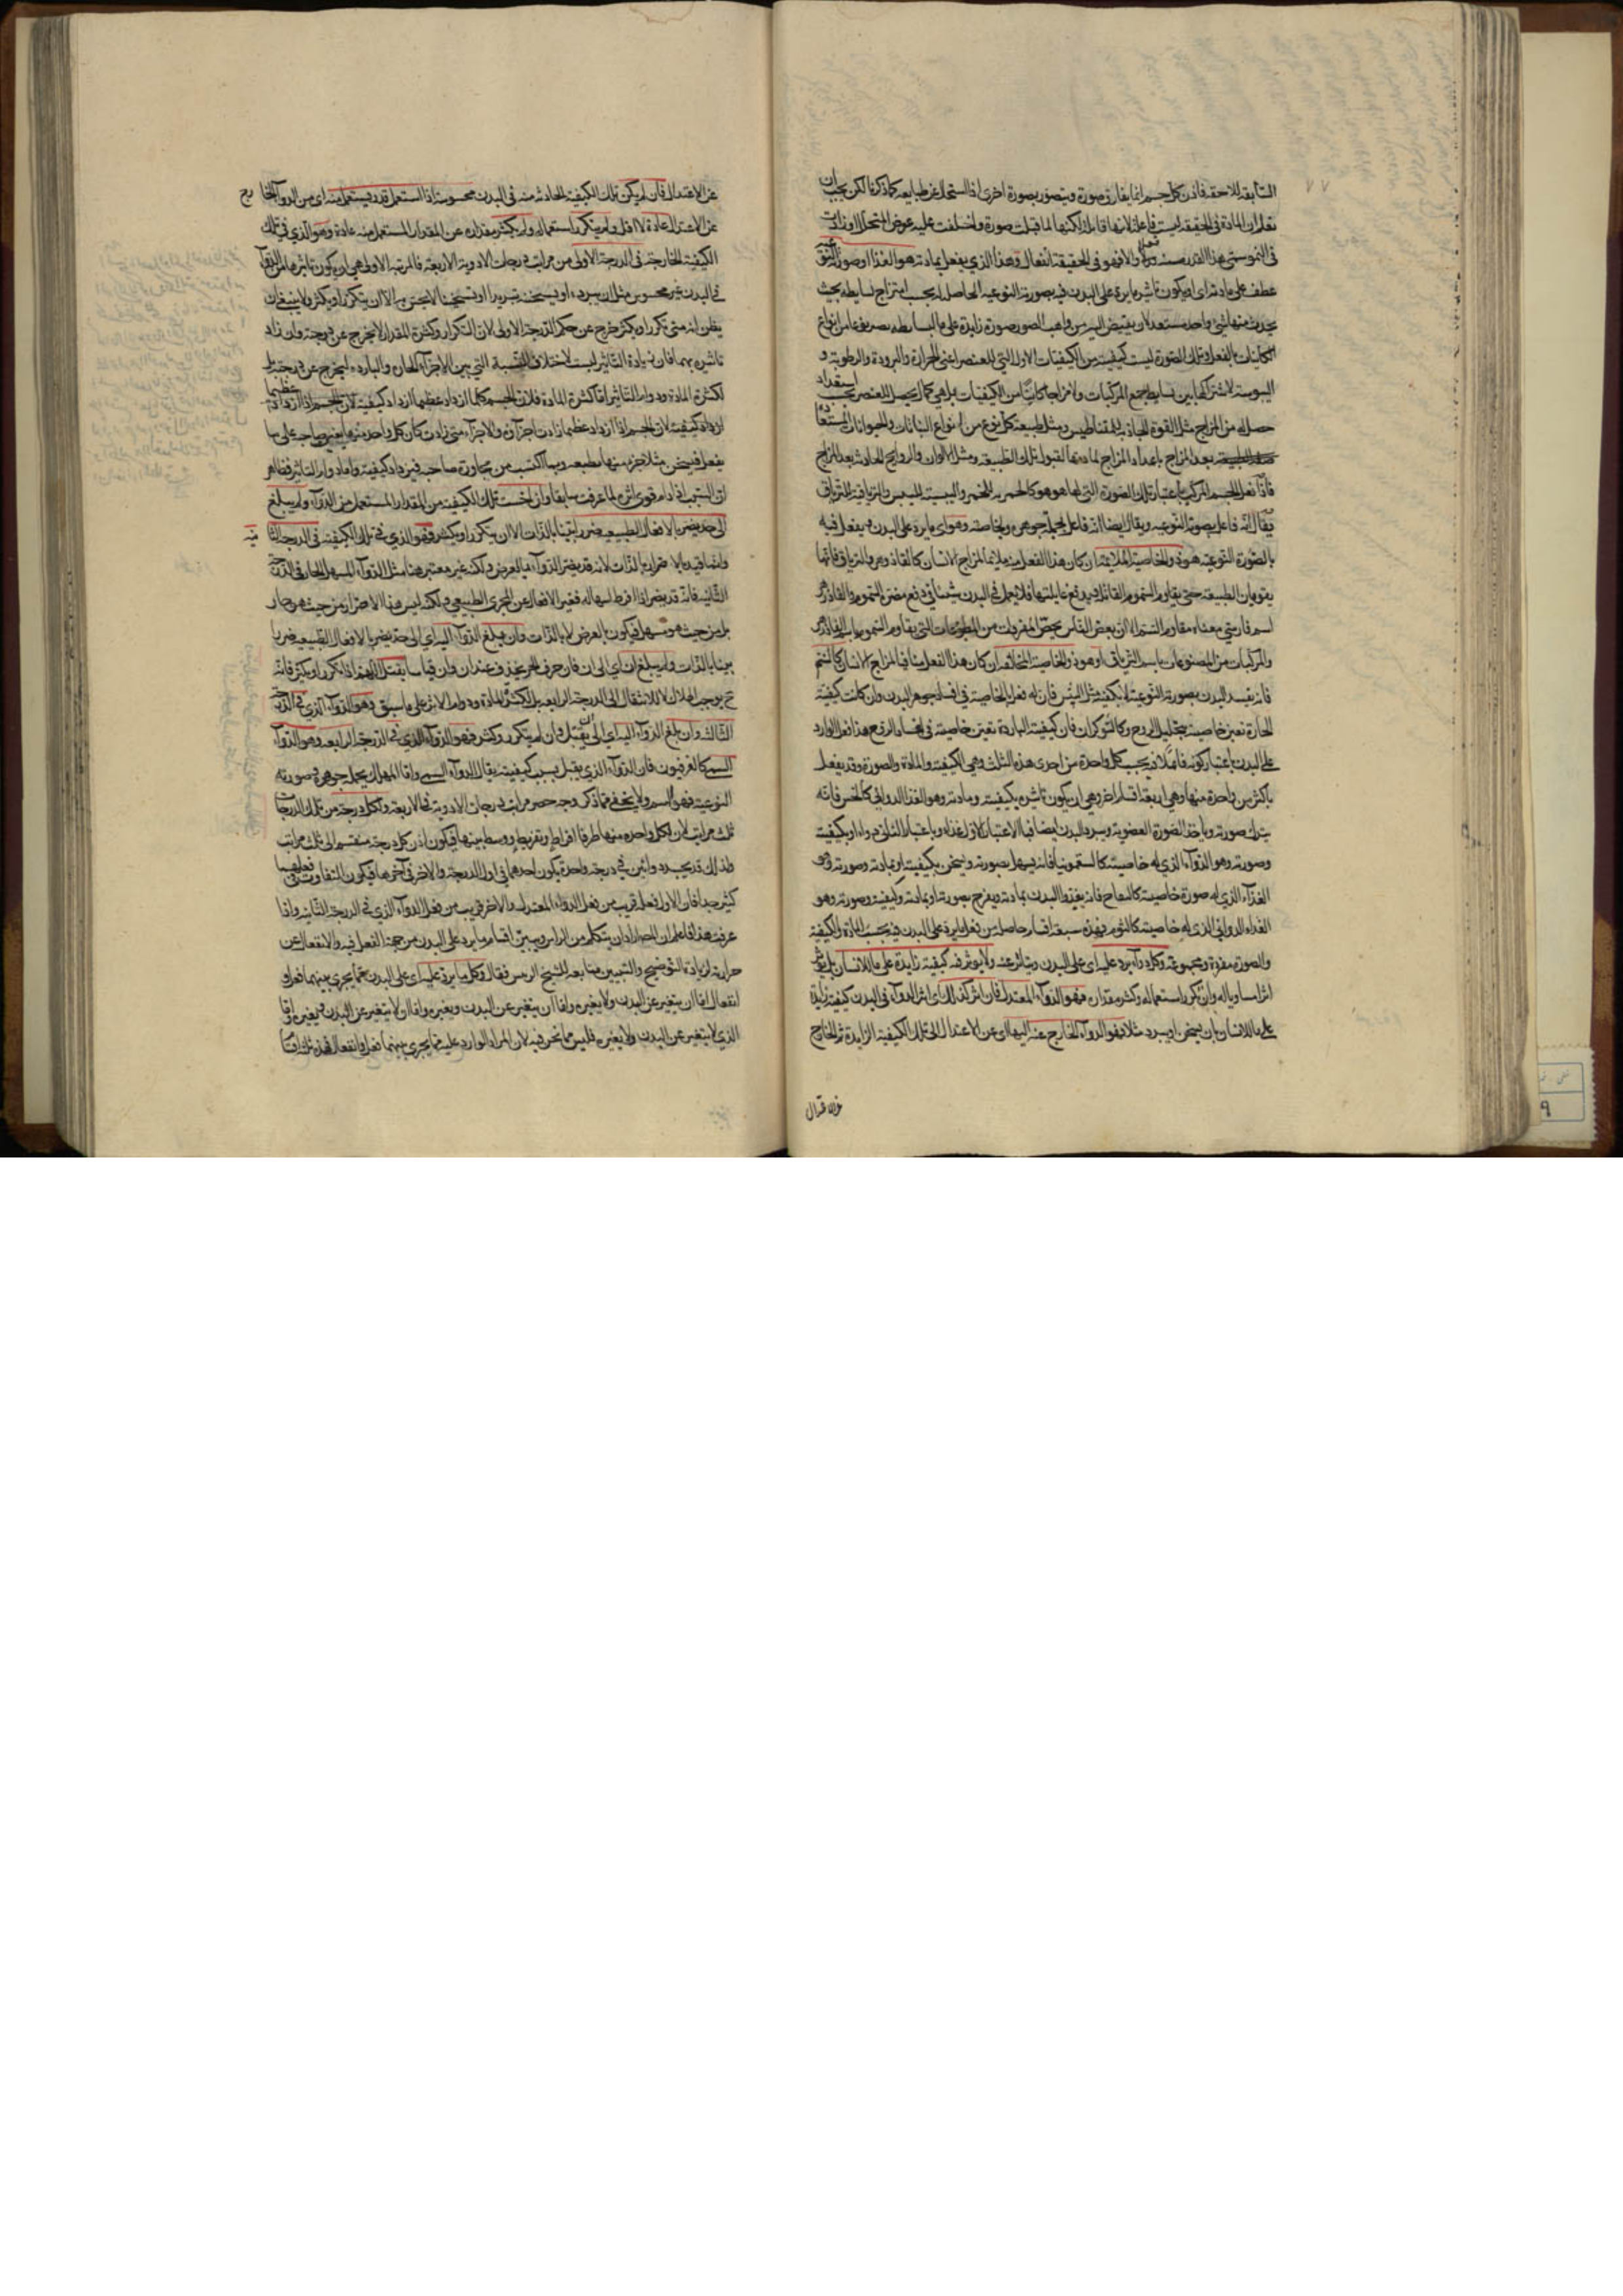 السابقة للاحقة فاذن كل جسم انما يفارق صورة ويتصور بصورة اخرى اذا استحال عن طبايعه كما ذكرنا لكن يجب ان
يعلم ان المادة في الحقيقة ليست فاعلة لانها قابلة لكنها لما قبلت صورة وخلفت عليه عوض المتحلل وزادت
في النمو سمي هذا القدر منه فعلا والا فهو في الحقيقة انفعال وهذا الذي يفعل بمادته هو الغذا او صورته النوعية
عطف على مادته اي او يكون تاثير ما يرد على البدن فيه بصورته النوعية الحاصلة له بحسب امتزاج بسايطه بحيث
يحدث منها شئ واحد مستعد لان يفيض اليه من واهب الصور صورة زايدة على ما لبسايطه
الكاينات بالفعل وتلك الصورة ليست كيفية من الكيفيات الاول التي للعنصر اعني الحرارة والبرودة والرطوبة و
اليبوسة لاشتراكها بين بسايط جميع المركبات ولا مزاجا كاينا من الكيفيات بل هي كمال يحصل للعنصر بحسب استعداد
حصل له من المزاج مثل القوة الجاذبة للمقناطيس ومثل طبيعة كل نوع من انواع النباتات والحيوانات المستعدة
بعد المزاج باعداد المزاج لمادتها لقبول تلك الطبيعة ومثل الالوان والروايح الحادثة بعد المزاج
فاذا فعل الجسم المركب باعتبار تلك الصورة التي لها هو هو كالخمرية للخمر واليبسية لليبس والترياقية للترياق
يقال انه فاعل بصورته النوعية ويقال ايضا انه فاعل بجملة جوهره وبخاصته وهو اي ما يرد على البدن ويفعل فيه
بالصورة النوعية هو ذو الخاصية الملايمة ان كان هذا الفعل منه ملايما لمزاج الانسان كالفاذزهر والترياق فانهما
يقويان الطبيعة حتى يقاوم السموم القاتلة ويدفع غايلتها فلا يعمل في البدن شيئا في دفع مضرة السموم والفاذزهر
اسم فارسي معناه مقاوم السم الا ان بعض الناس يخص المفردات من المطبوعات التي يقاوم السموم باسم الفاذزهر
والمركبات من المصنوعات باسم الترياق او هو ذو الخاصية المخالفة ان كان هذا الفعل منافيا لمزاج الانسان كالسم
فانه يفسد البدن بصورته النوعية لا بكيفيته مثل البيش فان له فعلا بالخاصية في افساد جوهر البدن وان كانت كيفيته
الحارة تعين خاصيته بتحليل الروح وكالشوكران فان كيفيته الباردة تعين خاصيته في اخماد الروح هذا فعل الوارد
على البدن باعتبار كونه فاعلا فيه بحسب كل واحدة من احدى هذه الثلث وهي الكيفية والمادة والصورة وقد يفعل
باكثر من واحدة منها وهي اربعة اقسام اخر وهي ان يكون تاثيره بكيفيته ومادته وهو الغذا الدوائي كالخس فانه
يترك صورته وياخذ الصورة العضوية ويبرد البدن ايضا فبالاعتبار الاول غذاء وباعتبار الثاني دواء او بكيفيته
وصورته وهو الدواء الذي له خاصية كالسقمونيا فانه يسهل بصورته ويسخن بكيفيته او بمادته وصورته وهو
الغذاء الذي له صورة خاصية كالتفاح فانه يغذوا البدن بمادته ويفرح بصورته او بمادته وكيفيته وصورته وهو
الغذاء الدوائي الذي له خاصية كالثوم فهذه سبعة اقسام حاصلة من فعل ما يرد على البدن فيه بحسب المادة والكيفية
والصورة مفردة ومجموعة وكل دواء يرد عليه اي على البدن ويتاثر عنه ولا يؤثر فيه كيفية زايدة على ما للانسان بل يؤثر
اثرا مساويا له وان تكرر استعماله وكثر مقداره فهو الدواء المعتدل فان اثر كذلك اي اثر الدواء في البدن كيفية زايدة
على ما للانسان بان يسخن او يبرد مثلا فهو الدواء الخارج عنه اليها اي عن الاعتدال الى تلك الكيفية الزايدة ثم الخارج
عن الاعتدال
عن الاعتدال فان لم يكن تلك الكيفية الحادثة منه في البدن محسوسة اذا استعمل قدر يستعمل منه اي من الدواء الخارج
عن الاعتدال عادة لا اقل ولم يتكرر استعماله ولم يكثر مقداره عن المقدار المستعمل منه عادة وهو الذي في تلك
الكيفية الخارجة في الدرجة الاولى من مراتب درجات الادوية الاربعة فالمرتبة الاولى هي ان يكون تاثيرها من الدواء
في البدن غير محسوس مثل ان يبرده او يسخنه تبريدا او تسخينا لا يحس به الا ان يتكرر او يكثر ولا ينبغي ان
يظن انه متى تكرر او يكثر خرج عن حكم الدرجة الاولى لان التكرار وكثرة المقدار لا يخرج عن درجته وان زاد
تاثيره بهما فان زيادة التاثير ليست لاختلاف النسبة التي بين الاجزاء الحارة والباردة ليخرج عن درجته بل
لكثرة المادة ودوام التاثير اما كثرة المادة فلان الجسم كلما ازداد عظما ازداد كيفية لان الجسم اذا ازداد عظما
ازداد كيفية لان الجسم اذا ازداد عظما زادت اجزاؤه والاجزاء متى زادت كان كل واحد منها يعين صاحبه على ما
يفعل فيسخن مثلا جزء منها بطبعه وبما اكتسب من مجاورة صاحبه فيزداد كيفية واما دوام التاثير فظاهر
ان السبب اذا دام قوى اثره لما عرفت سابقا وان احست تلك الكيفية من المقدار المستعمل من الدواء ولم يبلغ
الى حد يضر بالافعال الطبيعية ضررا بينا بالذات الا ان يتكرر او يكثر فهو الذي في تلك الكيفية في الدرجة الثانية
وانما قيد بالاضرار بالذات لانه قد يضر الدواء بالعرض ولكنه غير معتبر هنا مثل الدواء المسهل الحار في الدرجة
الثانية فانه قد يضر اذا افرط اسهاله فغير الافعال عن المجرى الطبيعي ولكنه ليس هذا الاضرار من حيث هو حار
بل من حيث هو مسهل فيكون بالعرض لا بالذات وان بلغ الدواء اليه اي الى حد يضر بالافعال الطبيعية ضررا
بينا بالذات ولم يبلغ ان اي الى ان فان حرف الجر يحذف عند ان وان قياسا يقتل اللهم اذا تكرر او يكثر فانه
ح يوجب الهلاك لا للانتقال الى الدرجة الرابعة بل لكثرة المادة ودوام الاثر على ما سبق وهو الدواء الذي في الدرجة
الثالثة وان بلغ الدواء اليه اي الى ان يقتل وان لم يتكرر وكثر فهو الدواء الذي في الدرجة الرابعة وهو الدواء
السمي كالفرفيون فان الدواء الذي يقتل بسبب كيفيته يقال له الدواء السمي واما المهلك بجملة جوهره وصورته
النوعية فهو السم ولا يخفى مما ذكر وجه حصر مراتب درجات الادوية في الاربعة ولكل درجة من تلك الدرجات
ثلث مراتب لان لكل واحدة منها طرفا افراط وتفريط ووسط بينهما فيكون اذن كل درجة منقسم الى ثلث مراتب
ولذلك قد يجد دوائين في درجة واحدة يكون احدهما في اول الدرجة والاخر في آخرها فيكون التفاوت في فعلهما
كثير جدا فان الاول فعله قريب من فعل الدواء المعتدل والاخر قريب من فعل الدواء الذي في الدرجة الثانية واذا
عرفت هذا فاعلم ان المص اراد ان يتكلم من الراس ويبين اقسام ما يرد على البدن من جهة الفعل فيه والانفعال عن
حرارته لزيادة التوضيح والتبيين متابعة للشيخ الرئيس فقال وكل ما يرد عليه اي على البدن مما يجري بينهما فعل و
انفعال اما ان يتغير عن البدن ولا يغيره واما ان يتغير عن البدن ويغيره واما ان لا يتغير عن البدن ويغيره واما
الذي لا يتغير عن البدن ولا يغيره فليس مما نحن فيه لان المراد الوارد عليه مما يجري بينهما فعل وانفعال فهذه ثلثة اقسام